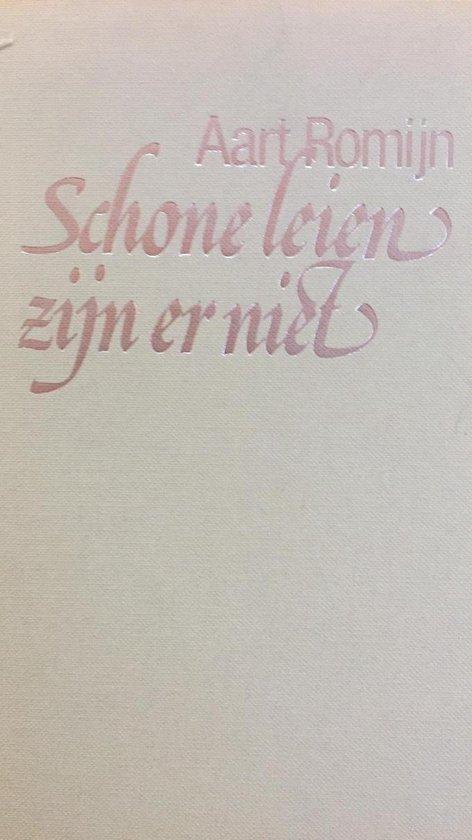 Aart Romijn
Schone leien
zijn er niet